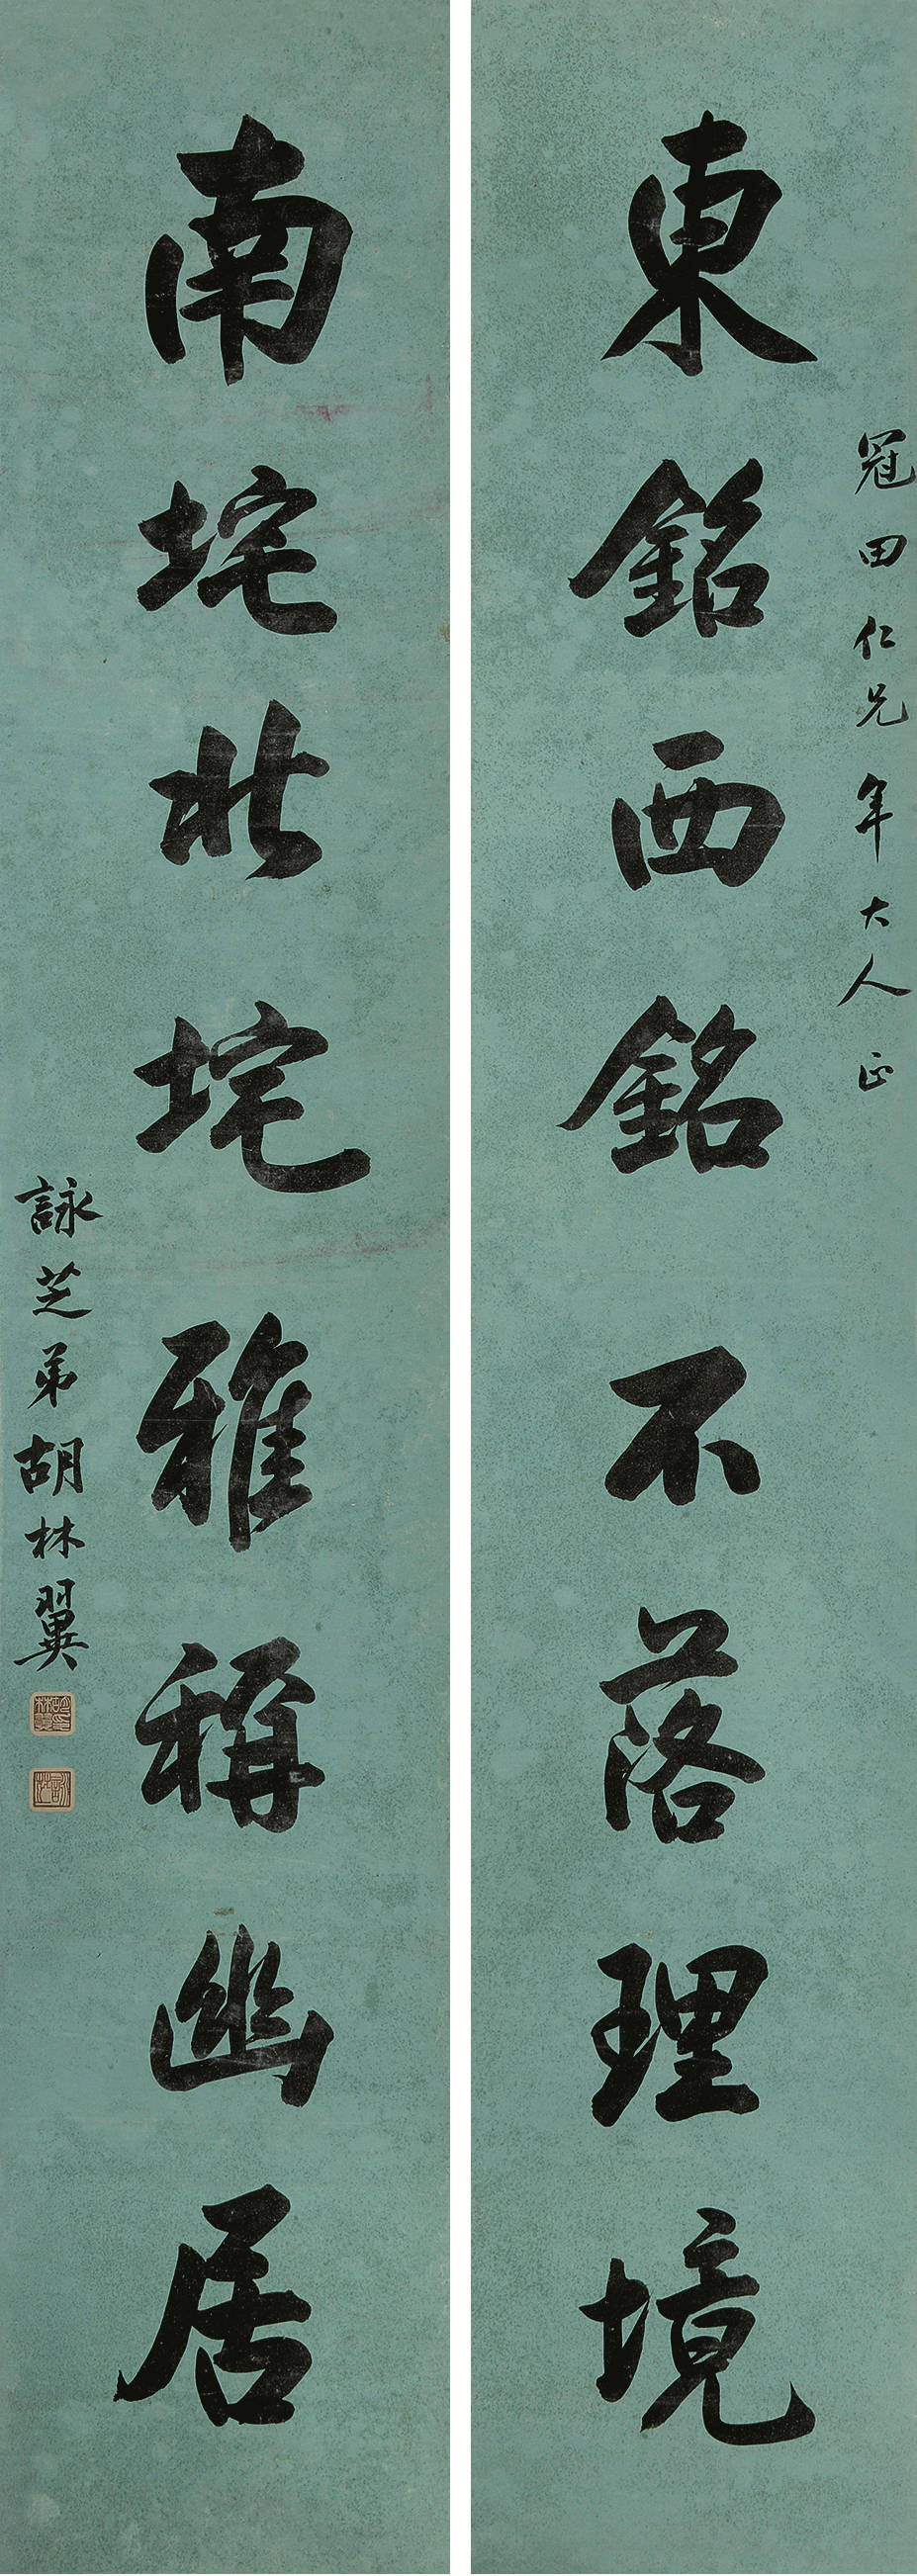 東銘西銘不落理境
冠田仁兄年大人正
南垞北垞雅稱幽居
詠芝弟胡林翼